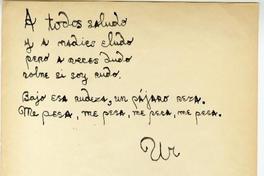 A todos saludo
y a nadie eludo
pero a veces dudo
sobre si soy rudo.
Bajo esa rudeza, un pájaro reza.
Me pesa, me pesa, me pesa, me pesa.